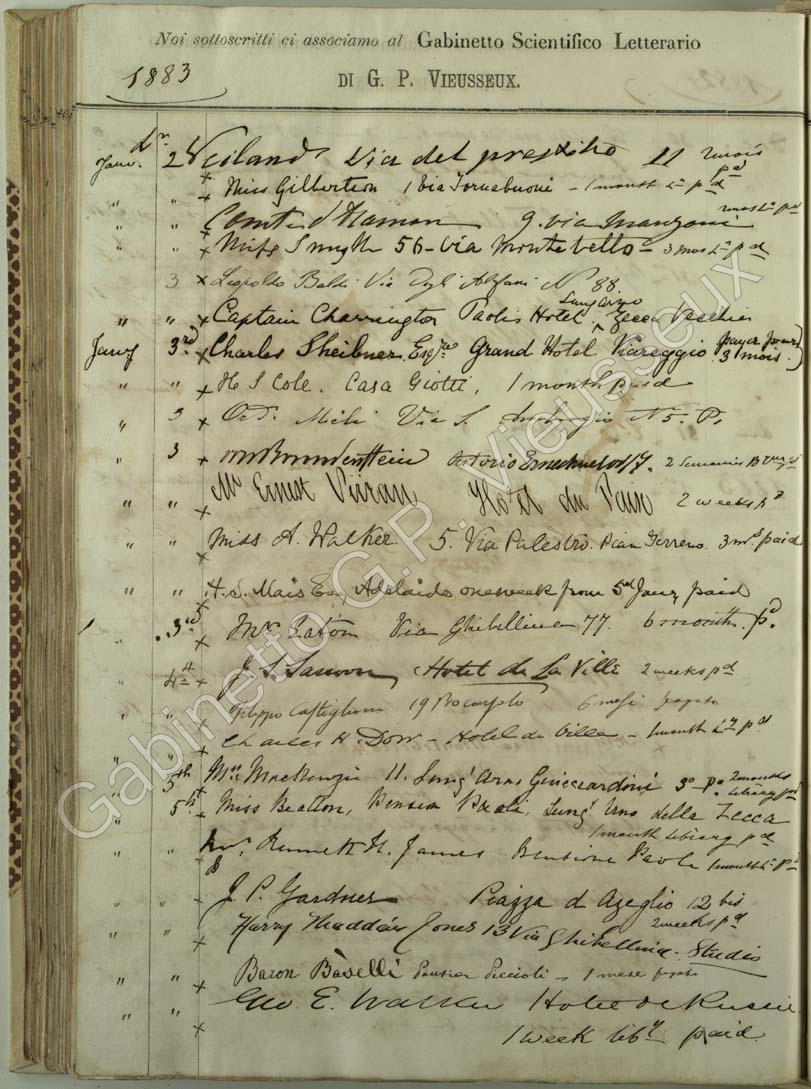 Noi sottoscritti ci associamo al Gabinetto Scientifico Letterario
1883
DI G. P. VIEUSSEUX.
Janv. 2 Weiland Via del 11 2 mois pd
" " x Miss Gilbertson 1 Via Tornabuoni - 1 month Ln pd
" " x Comte d'Hamon 9. via Manzoni
" " x Miss Smyth 56 - Via Montebello - 3 mos Ln pd
3 x Leopoldo Via Degli Alfani No 88
" " x Captain Charrington Paolis Hotel Lungarno Zecca Vecchia
Jany 3rd x Charles Esqre Grand Hotel Viareggio (payé pour 3 mois.)
" " x H S Cole. Casa Giotti, 1 month paid
" 3 x Via S. Ambrogio N 5. P.
" 3 x
" " Mr Ernest Vivian Hotel du Paix 2 weeks pd
" " x Miss A. Walker 5. Via Palestro. Pian Terreno. 3 ms paid
" " x H. S. Mais Esq Adelaide one week from 5th Jany paid
" 3rd x Mrs Eaton Via Ghibellina 77. 6 month. pd
" 4th x J. S. Hotel de La Ville 2 weeks pd
" " x Filippo Castiglioni 19 6 mesi pagato
" " x Charles H. Dow - Hotel de Ville - 1 month Ly pd
" 5th x Mrs MacKenzie 11. Lung' Arno Guicciardini 3o Po 2 months library pd
" 5th x Miss Beatton, Pension Paoli, Lung' Arno della Zecca
1 month library pd
" " x James Pensione Paoli 1 month Ln pd
" " x J. P. Gardner Piazza d Azeglio 12 bis
2 weeks pd
" " x Harry Maddan Jones 13 Via Ghibellina. Studio
" " x Baron Baselli Pension Piccioli - 1 mese pagato
" " x Geo E. Walker Hotel de Russie
1 week liby paid
Gabinetto G.P. Vieusseux